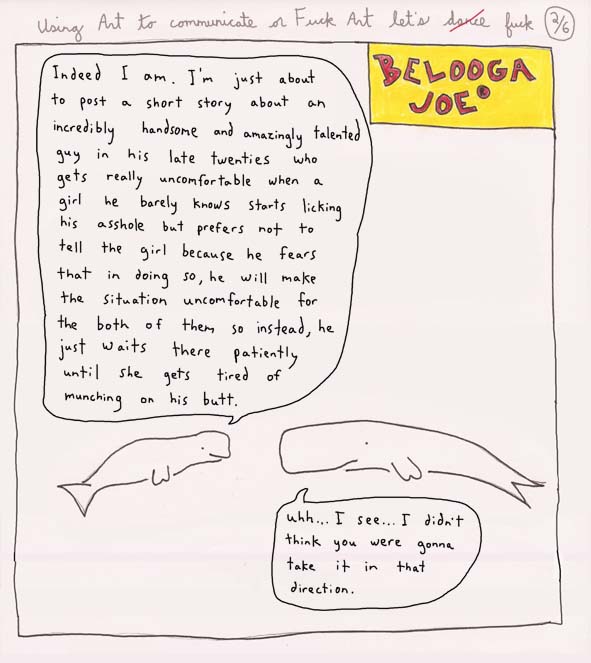 Using Art to communicate or Fuck Art let's dance fuck 2/6
BELOOGA
JOE®
Indeed I am. I'm just about
to post a short story about an
incredibly handsome and amazingly talented
guy in his late twenties who
gets really uncomfortable when a
girl he barely knows starts licking
his asshole but prefers not to
tell the girl because he fears
that in doing so, he will make
the situation uncomfortable for
the both of them so instead, he
just waits there patiently
until she gets tired of
munching on his butt.
uhh... I see... I didn't
think you were gonna
take it in that
direction.